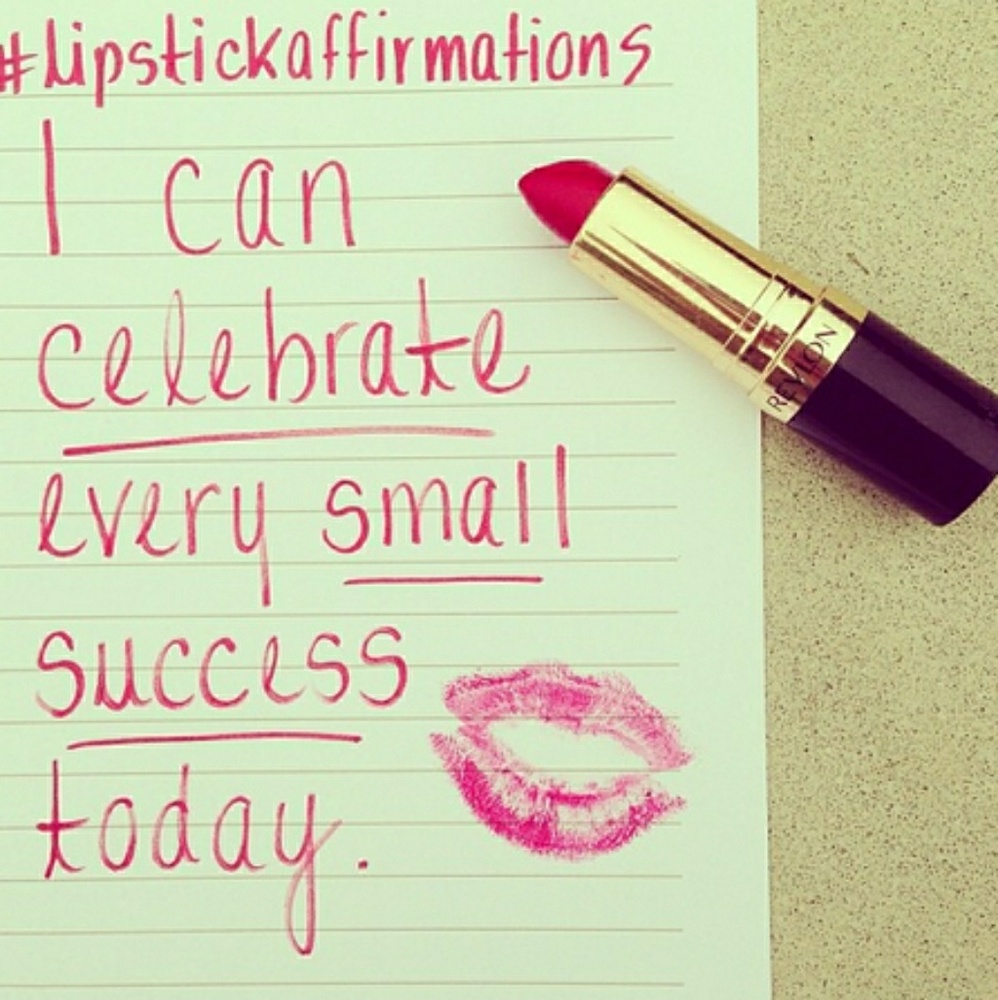 #lipstickaffirmations
I can
celebrate
every small
success
today.
REVLON